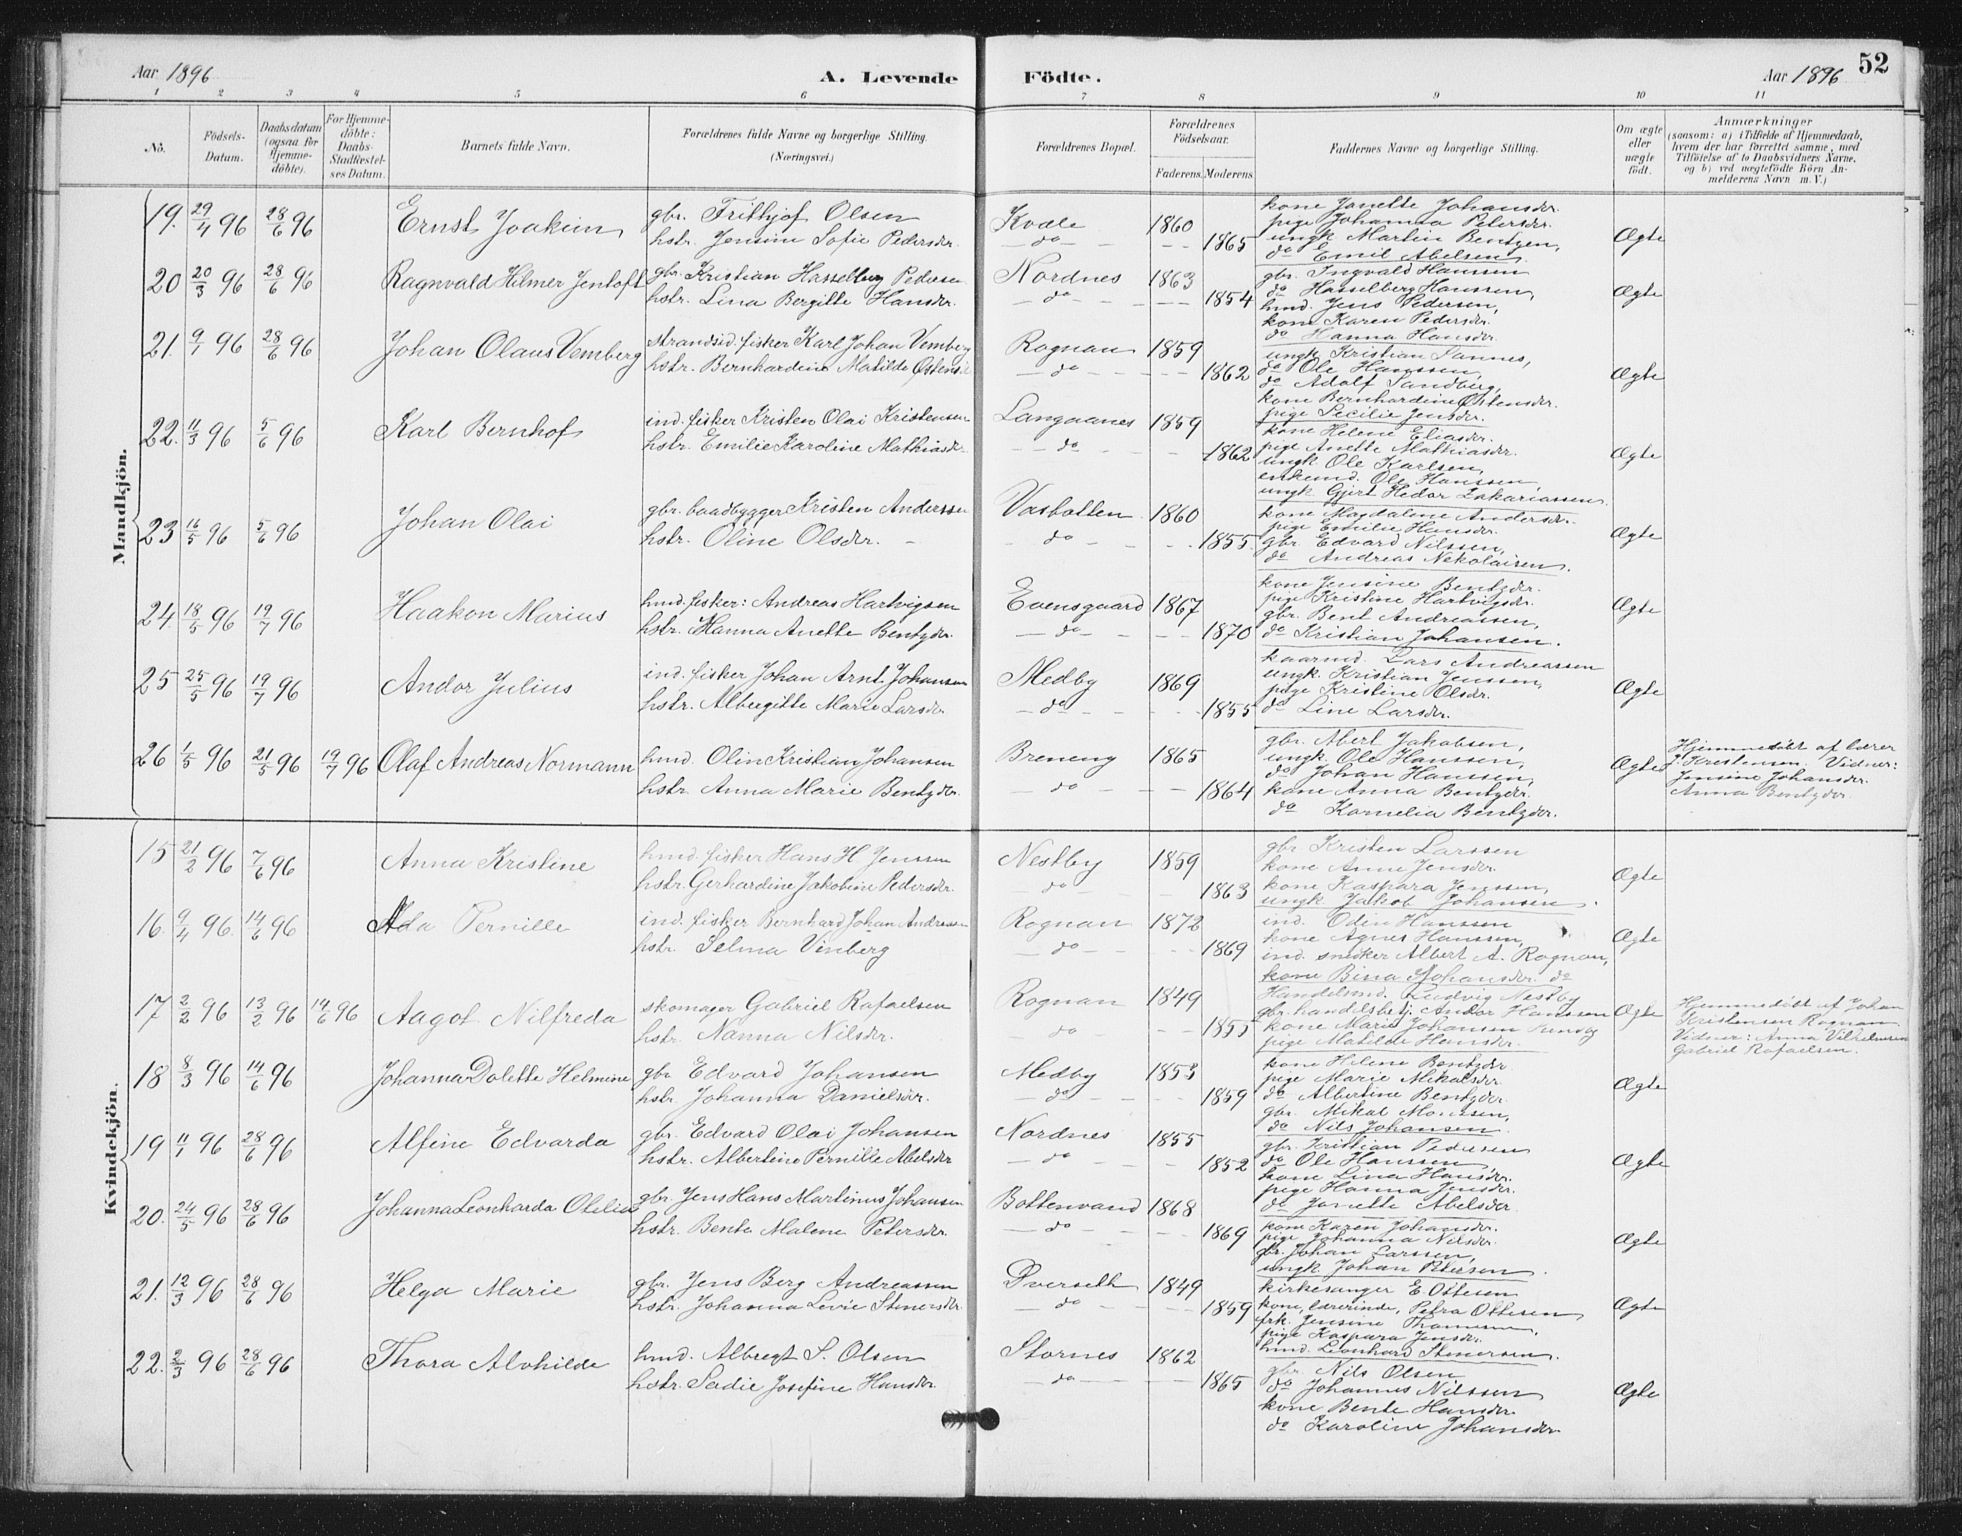 Aar 1896 A. Levende Födte. Aar 1896 52
1 2 3 4 5 6 7 8 9 10 11
No. Födsels-Datum. Daabsdatum (ogsaa for Hjemme-döbte). For Hjemme-döbte: Daabs-Stadfæstel-ses Datum. Barnets fulde Navn. Forældrenes fulde Navne og borgerlige Stilling. (Næringsvei.) Forældrenes Bopæl. Forældrenes Födselsaar. Faderens. Moderens Faddernes Navne og borgerlige Stilling. Om ægte eller uægte födt. Anmærkninger (saasom: a) i Tilfælde af Hjemmedaab, hvem der har forrettet samme, med Tilföielse af to Daabsvidners Navne, og b) ved uægtefödte Börn An-melderens Navn m. V.)
Mandkjön.
19. 29/4 96 28/6 96 Ernst Joakim gbr. Frithjof Olsen Kvæle 1860
hstr. Jensine Sofie Pedersdr. do 1865 Ægte
kone Janette Johansdr.
pige Johanna Petersdr.
ungk Martin Bentzen,
do Emil Abelsen.
20 20/3 96 28/6 96 Ragnvald Hilmer Jentoft gbr. Kristian Hasselberg Pedersen Nordnes 1863
hstr. Lina Bergitte Hansdr. do 1854 Ægte
gbr. Ingvald Hanssen
do Hasselberg Hanssen,
hmd. Jens Pedersen,
kone Karen Pedersdr.
do Hanna Hansdr.
21. 9/1 96 28/6 96 Johan Olaus Vemberg Strandsid. fisker Karl Johan Vemberg Rognan 1859
hstr. Bernhardine Matilde do 1862 Ægte
ungk Kristian Sannes,
do Ole Hanssen,
do Adolf Sandberg,
kone Bernhardine Østensdr.
pige Secilie Jensdr.
22. 11/3 96 5/6 96 Karl Bernhof ind. fisker Kristen Olai Kristensen Langaanes 1859
hstr. Emilie Karoline Mathiasdr. do 1862 Ægte
kone Helene Eliasdr.
pige Anette Mathiasdr.
ungk. Ole Karlsen,
enkemd. Ole Hanssen,
ungk Gjert Hedar Zakariassen.
23 16/5 96 5/6 96 Johan Olai gbr. baadbygger Kristen Anderssen Vasbotten 1860
hstr. Oline Olsdr. do 1855. Ægte
kone Magdalene Andersdr.
pige Emilie Hansdr.
gbr. Edvard Nilssen,
do Andreas Nekolaisen.
24. 18/5 96 19/7 96 Haakon Marius hmd. fisker: Andreas Hartvigsen Evensgaard 1867
hstr. Hanna Anette Bentzdr. do 1870 Ægte
kone Jensine Bentzdr.
pige Kristine Hartvigsdr.
gbr. Bent Andreassen,
do Kristian Johansen.
25 25/5 96 19/7 96 Andor Julius ind. fisker Johan Arnt Johansen Medby 1869
hstr. Albregitte Marie Larsdr. do 1855 Ægte
kaarmd. Lars Andreassen
ungk. Kristian Jenssen,
pige Kristine Olsdr.
do Line Larsdr.
26 1/5 96 21/5 96 19/7 96 Olaf Andreas Normann hmd. Olin Kristian Johansen Breneng 1865
hstr. Anna Marie Bentzdr. do 1864 Ægte
gbr. Abert Jakobsen,
ungk. Ole Hanssen,
do Johan Hanssen,
kone Anna Bentzdr.
do Kornelia Bentzdr.
Hjemmedöbt af lærer
J. Kristensen. Vidner:
Jensine Johansdr.
Anna Bentzdr.
Kvindekjön.
15 21/2 96 7/6 96 Anna Kristine hmd. fisker Hans H. Jenssen Nestby 1859
hstr. Gerhardine Jakobine Pedersdr. do 1863 Ægte
gbr Kristen Larssen
kone Anne Jensdr.
kone Kaspara Jenssen,
ungk Jakob Johansen.
16. 9/4 96. 14/6 96 Ada Pernille ind. fisker Bernhard Johan Andreassen Rognan 1872
hstr. Selma Vinberg do 1869 Ægte
ind. Odin Hanssen
kone Agnes Hanssen,
ind. snedker Albert A. Rognan,
kone Bina Johansdr. do
17 2/2 96 13/2 96 14/6 96 Aagot Nilfreda skomager Gabriel Rafaelsen Rognan 1849
hstr. Nanna Nilsdr. do 1855 Ægte
Handelsmd. Ludvig Nestby
gbr. handelsbetj. Andor Hanssen
kone Marie Johansen Sundby
pige Matilde Hansdr.
Hjemmedöbt af Johan
Kristensen Rognan
Vidner: Anna Vilhelmsen
Gabriel Rafaelsen.
18 8/3 96 14/6 96 Johanna Dolette Helmine gbr Edvard Johansen Medby 1853
hstr. Johanna Danielsdr. do 1859 Ægte
kone Helene Bentzdr.
pige Marie Mikalsdr.
do Albertine Bentzdr.
gbr. Mikal
do Nils Johansen.
19 11/1 96 28/6 96 Alfine Edvarda gbr. Edvard Olai Johansen Nordnes 1855
hstr. Albertine Pernille Abelsdr do 1852 Ægte
gbr. Kristian Pedersen
do Ole Hanssen,
kone Lina Hansdr.
pige Hanna Jensdr.
do Janette Abelsdr.
20. 24/5 96 28/6 96 Johanna Leonharda Otelie gbr. Jens Hans Martinus Johansen Bottenvand 1868
hstr. Bente Malene Petersdr. do 1869 Ægte
kone Karen Johansdr.
pige Johanna Nilsdr.
gbr. Johan Larssen,
ungk. Johan Petersen.
21. 12/3 96 28/6 96 Helga Marie gbr. Jens Berg Andreassen Dverseth 1849
hstr. Johanna Levie Stenersdr. do 1859 Ægte
kirkesanger E. Ottesen
kone, lærerinde, Petra Ottesen
frk. Jensine
pige Kaspara Jensdr.
hmd. Leonhard Stenersen.
22. 2/3 96 28/6 96 Thora Alvhilde hmd. Albregt S. Olsen Stornes 1862
hstr. Sadie Josefine Hansdr. do 1865 Ægte
gbr Nils Olsen
do Johannes Nilssen
kone Bente Hansdr.
do Karoline Johansdr.